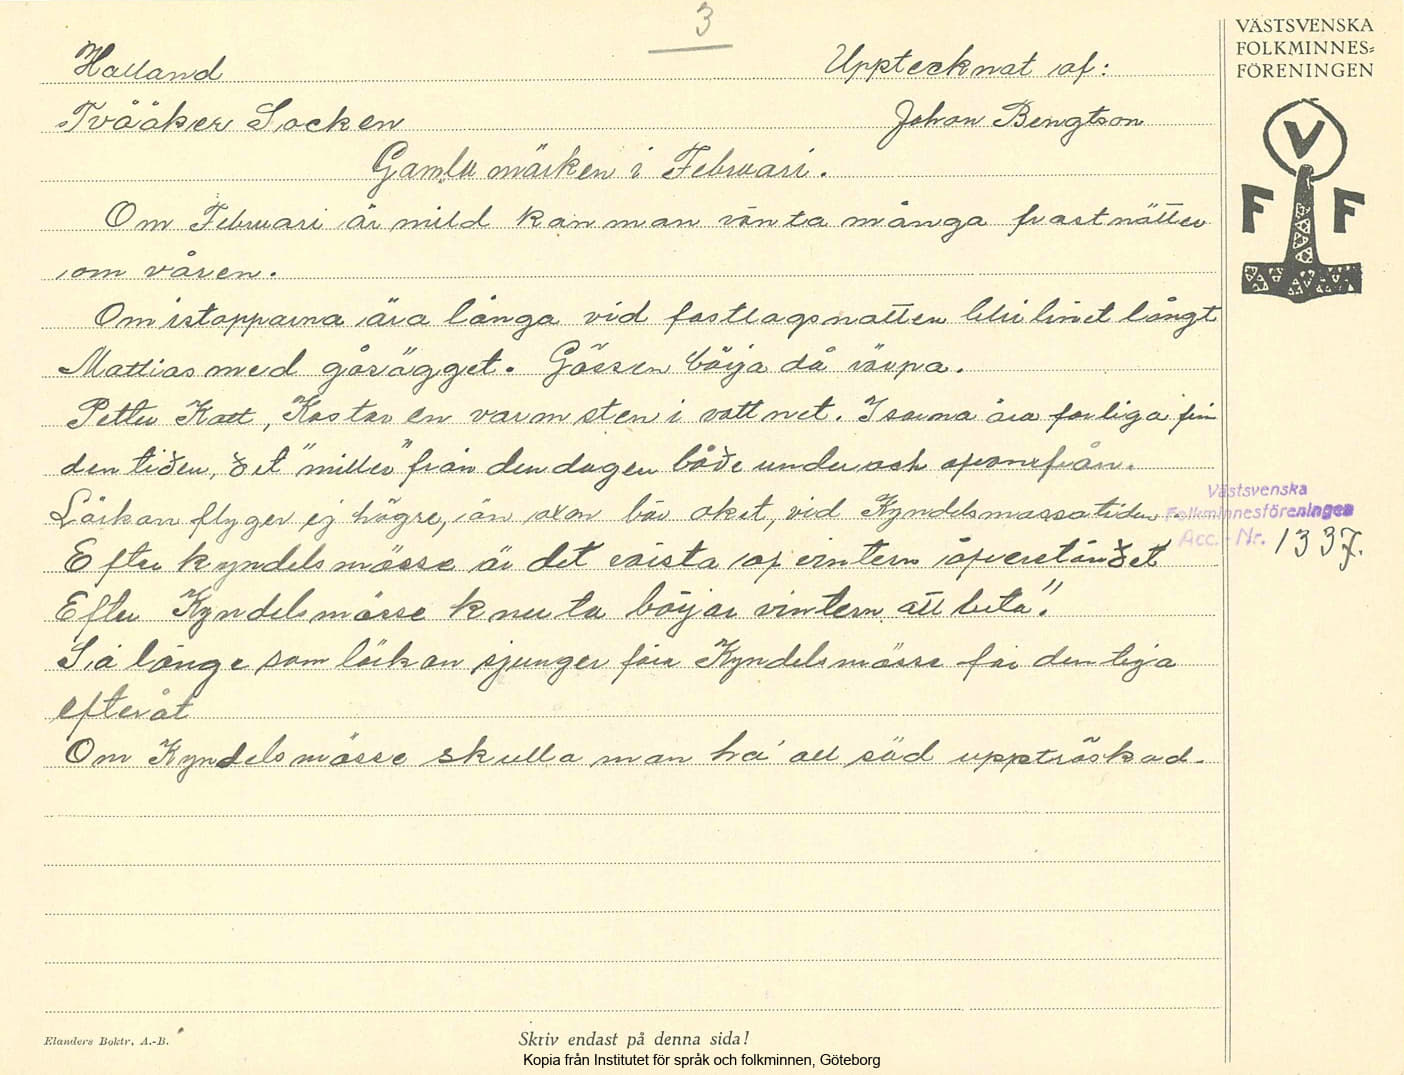 3
VÄSTSVENSKA
FOLKMINNES=
FÖRENINGEN
V
F F
Halland Upptecknat af:
Tvååker Socken Johan Bengtson
Gamla märken i Februari.
Om Februari är mild kan man vänta många frostnätter
om våren.
Om istapparna ära långa vid fastlagsnatten blir linet långt
Mattias med gåsägget. Gässen börja då värpa.
Petter Katt, Kastar en varm sten i vattnet. Isarna ära farliga från
den tiden, det "milter" från den dagen både under och ofvanifrån.
Lärkan flyger ej högre, än oxen bär oket, vid Kyndelsmässatiden.
Efter kyndelsmässe är det värsta af vintern öfverståndet
Efter Kyndelsmässe knuta börjar vintern att luta".
Så länge som lärkan sjunger före Kyndelsmässe får den tiga
efteråt
Om Kyndelsmässe skulla man ha' all säd uppträskad.
Västsvenska
Folkminnesföreningen
Acc.-Nr. 1337.
Elanders Boktr. A.-B.
Skriv endast på denna sida!
Kopia från Institutet för språk och folkminnen, Göteborg